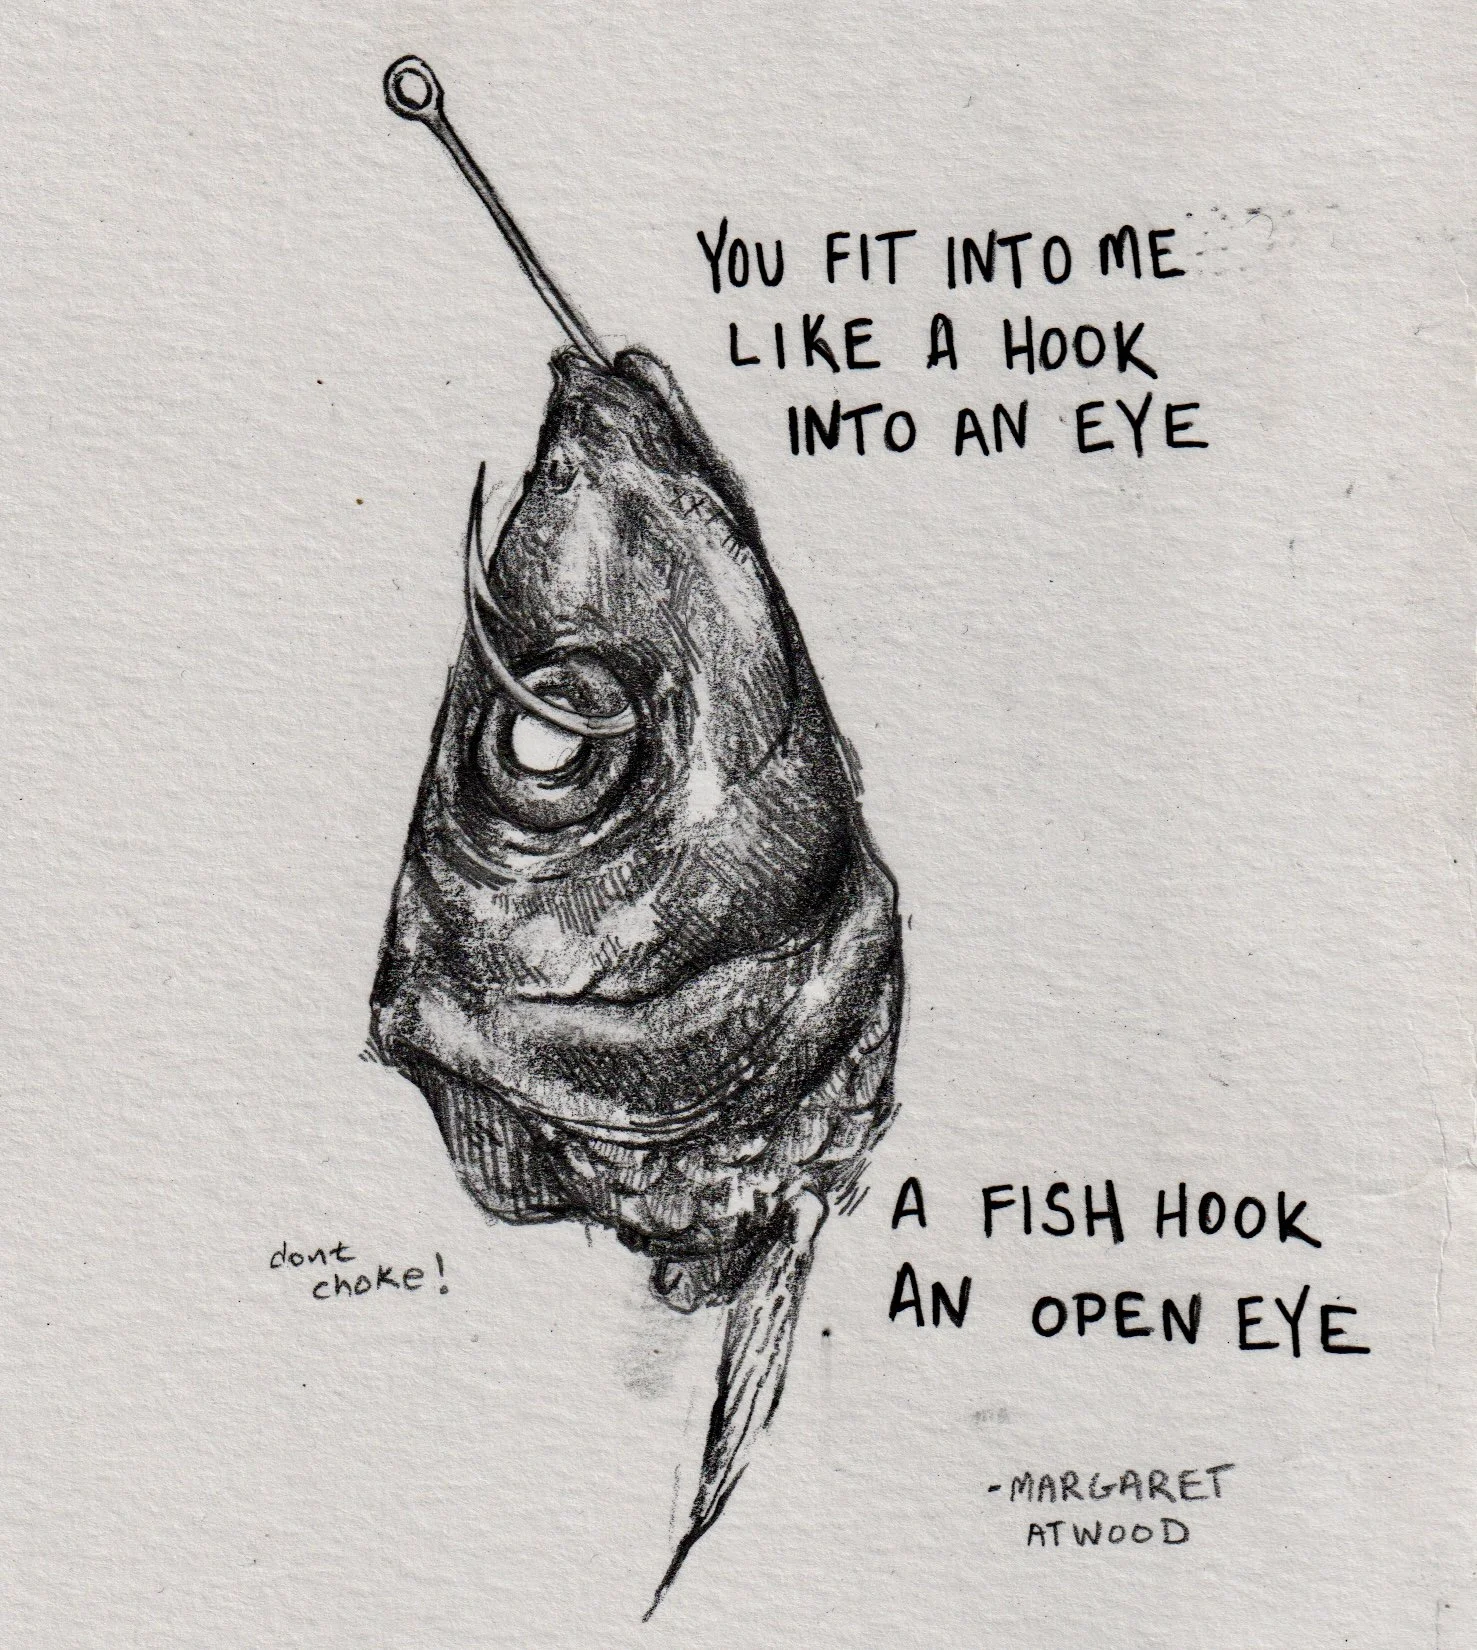 YOU FIT INTO ME
LIKE A HOOK
INTO AN EYE
A FISH HOOK
AN OPEN EYE
dont
choke!
-MARGARET
ATWOOD